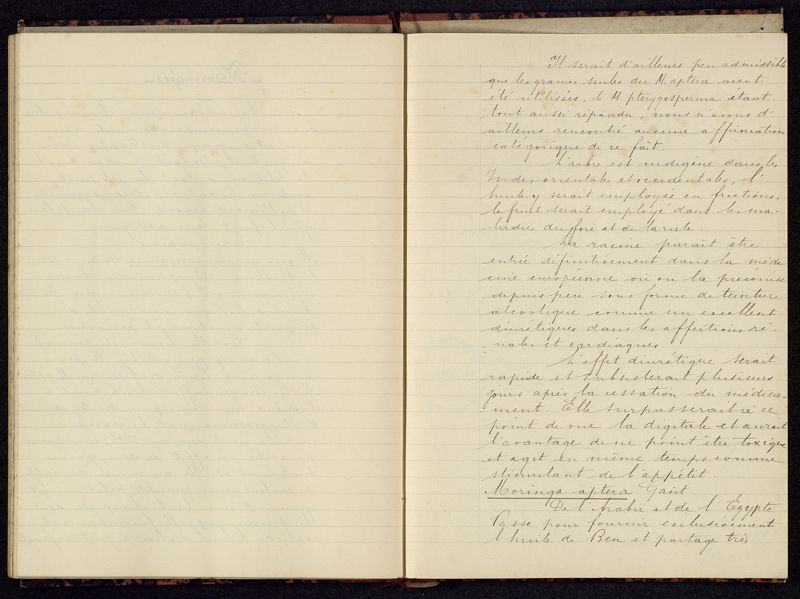 Il serait d'ailleurs peu admissible
que les graines seules du M. aptera aient
été utilisées, le M. pterygosperma étant
tout aussi répandu, nous n'avons d'
ailleurs rencontré aucune affirmation
catégorique de ce fait.
L'arbre est indigène dans les
Indes orientales et occidentales, l'
huile y serait employée en frictions,
le fruit serait employé dans les ma-
ladies du foie et de la rate.
La racine paraît être
entrée définitivement dans la méde
cine européenne où on la préconise
depuis peu sous forme de teinture
alcoolique comme un excellent
diurétiques dans les affections ré-
nales et cardiaques
L'effet diurétique serait
rapide et subsisterait plusieurs
jours après la cessation du médica-
ment. Elle surpasserait à ce
point de vue la digitale et aurait
l'avantage de ne point être toxique
et agit en même temps comme
stimulant de l'appétit.
Moringa aptera Gaërt
De l'Arabie et de l'Egypte
Passe pour fournir exclusivement
l'huile de Ben et partage très